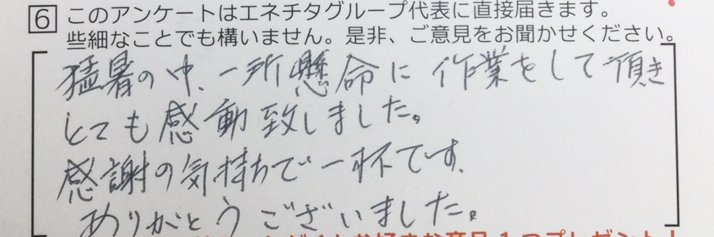 6 このアンケートはエネチタグループ代表に直接届きます。
些細なことでも構いません。是非、ご意見をお聞かせください。
猛暑の中、一所懸命に作業をして頂き
とても感動致しました。
感謝の気持ちで一杯です。
ありがとうございました。